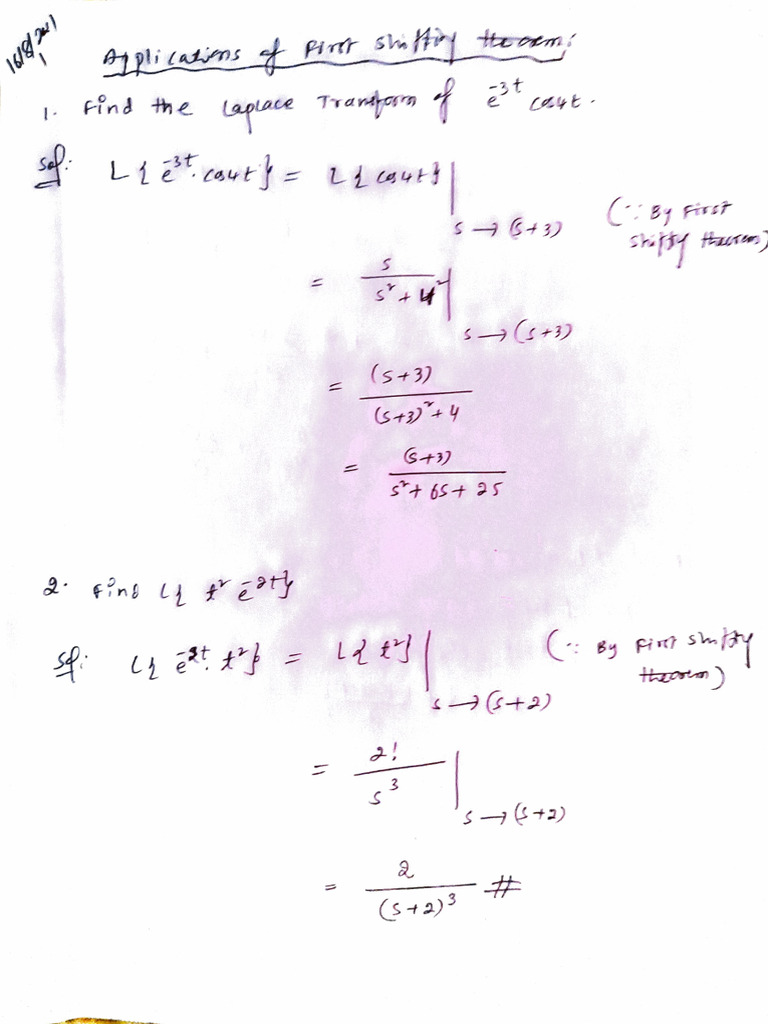 16/8/2021
Applications of First Shifting theorem:
1. Find the Laplace Transform of e^{-3t} cos4t.
Sol: L{e^{-3t}. cos4t} = L{cos4t}| s → (s+3) (∵ By First shifting theorem)
= s / (s² + 4²) | s → (s+3)
= (s+3) / ((s+3)² + 4)
= (s+3) / (s² + 6s + 25)
2. Find L{t² e^{-2t}}
Sol: L{e^{-2t}. t²} = L{t²}| s → (s+2) (∵ By First shifting theorem)
= 2! / s³ | s → (s+2)
= 2 / (s+2)³ #